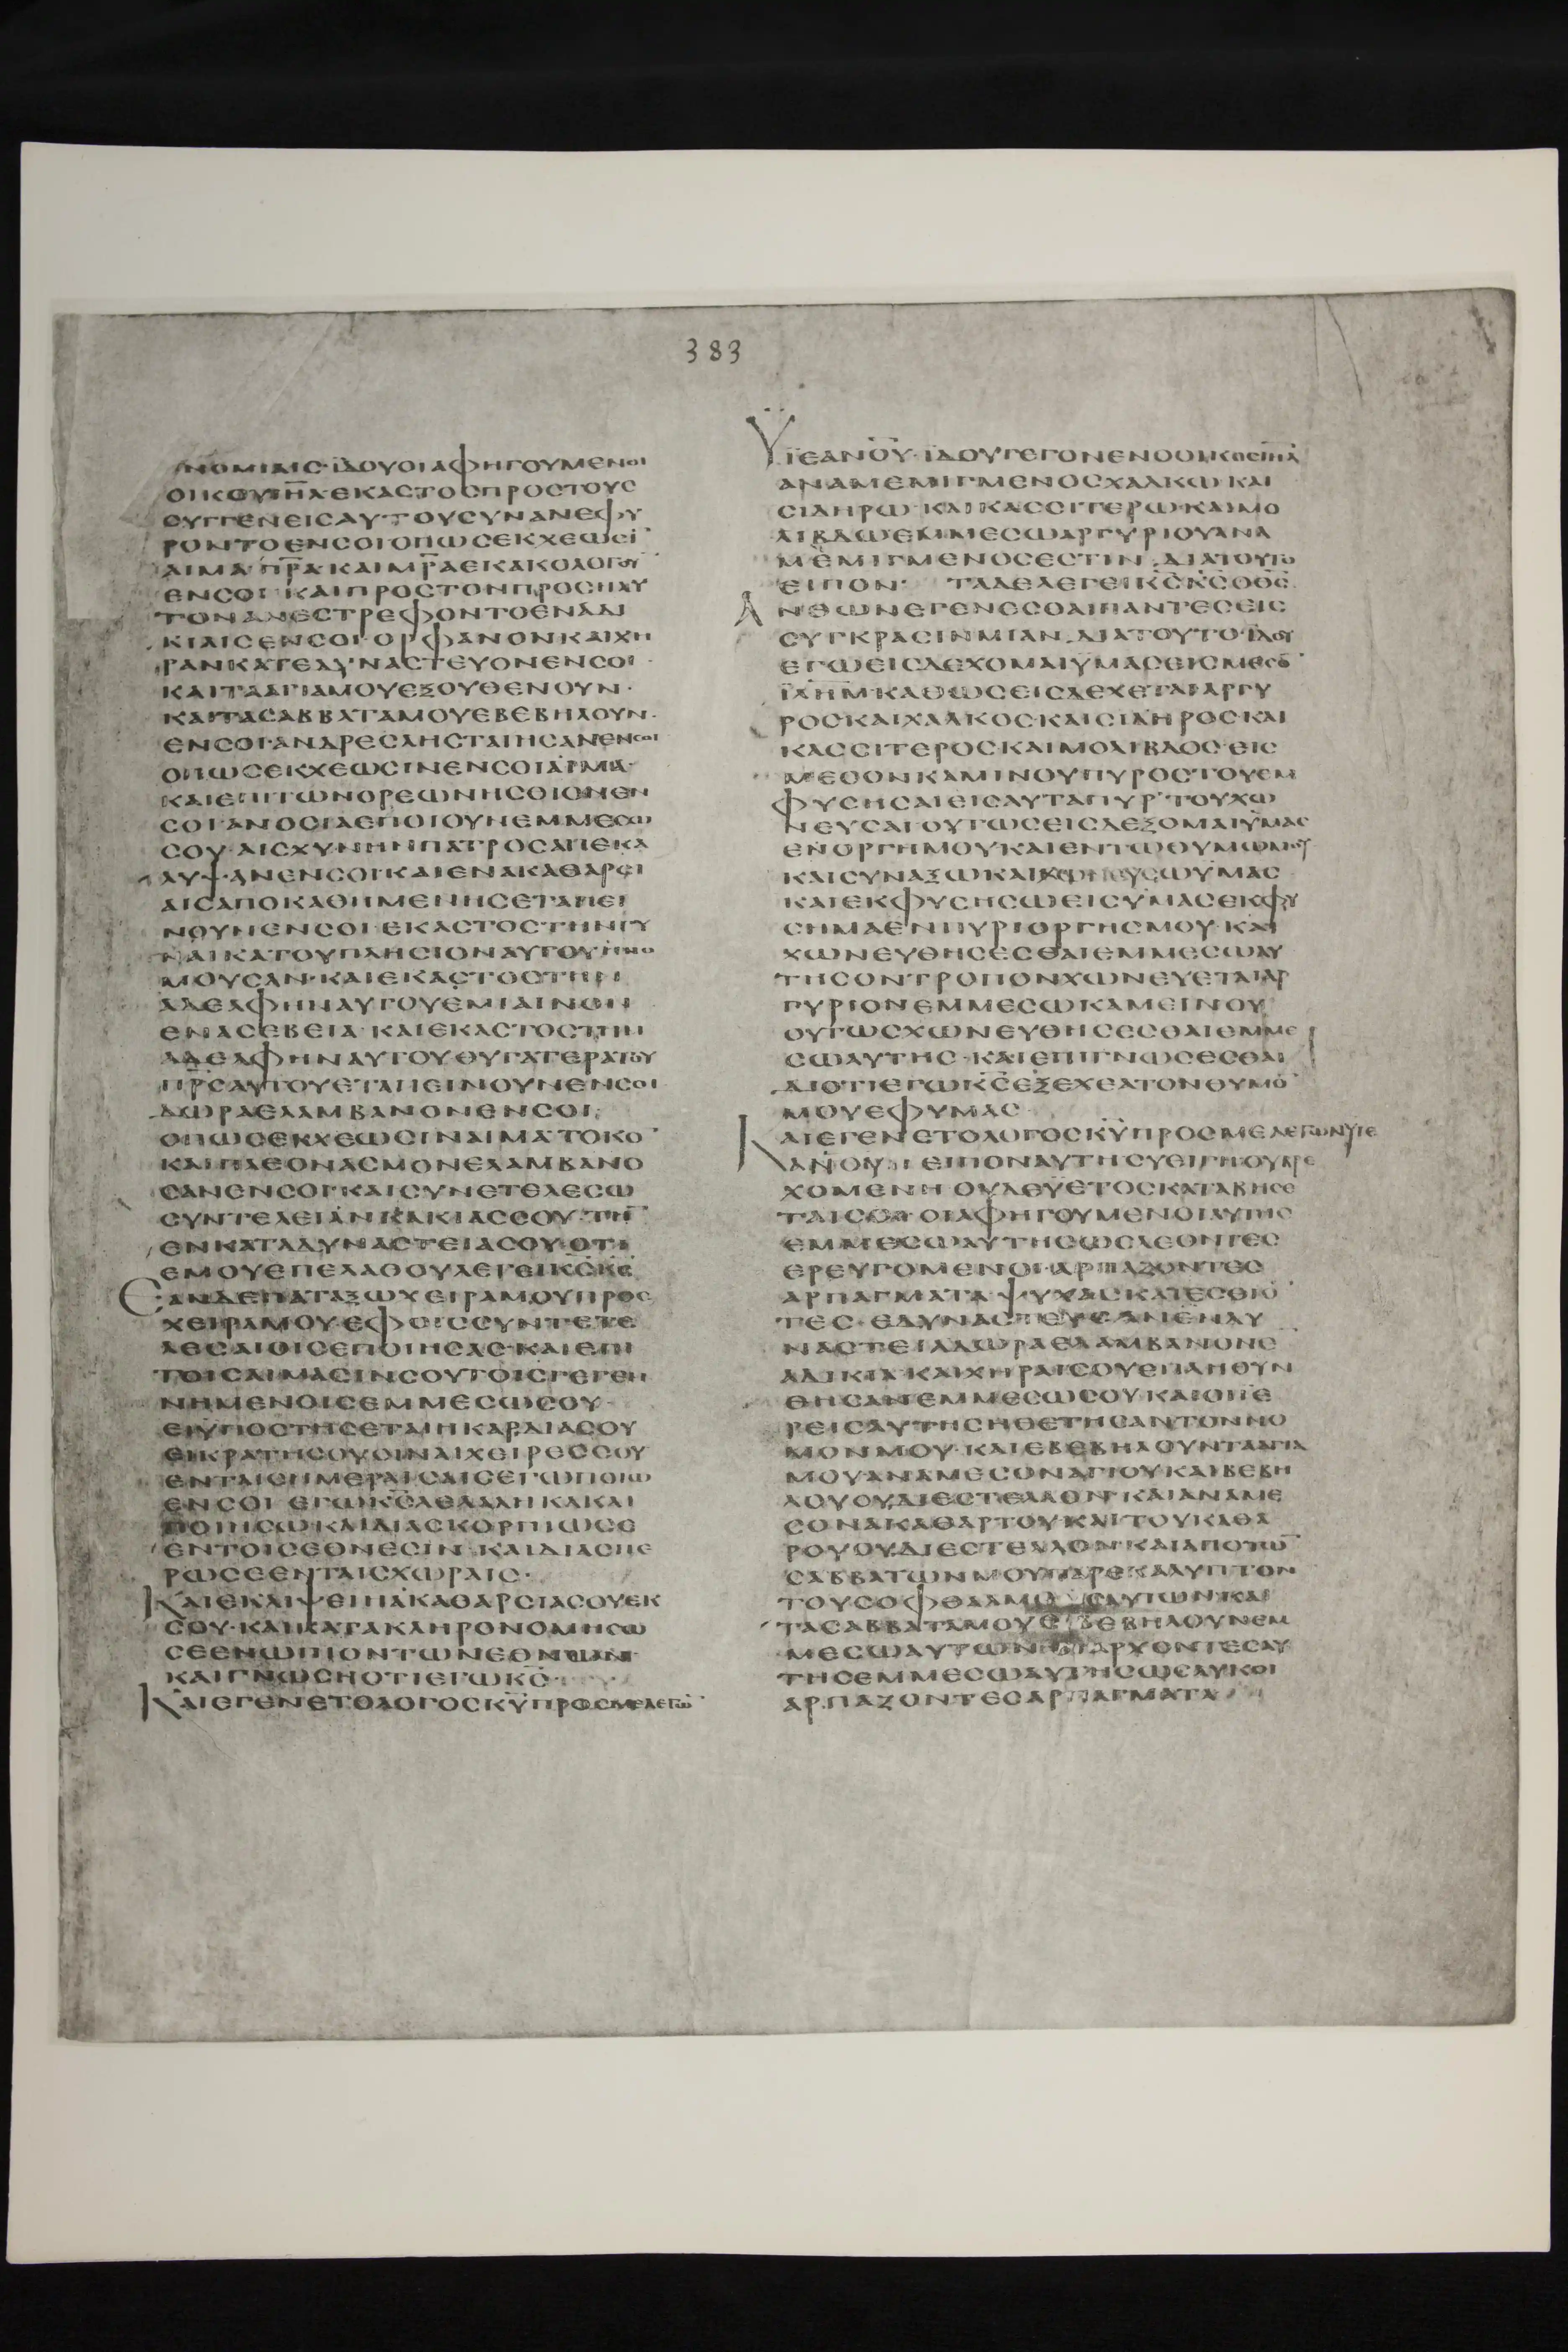 383
ΝΟΜΙΑΙΣ·ΪΔΟΥΟΙΑΦΗΓΟΥΜΕΝΟΙ
ΟΙΚΟΥΙΗΛΕΚΑΣΤΟΣΠΡΟΣΤΟΥΣ
ΣΥΓΓΕΝΕΙΣΑΥΤΟΥΣΥΝΑΝΕΦΥ
ΡΟΝΤΟΕΝΣΟΙΟΠΩΣΕΚΧΕΩΣΙ
ΑΙΜΑ·ΠΡΑ·ΚΑΙΜΡΑΕΚΑΚΟΛΟΓΟΥ
ΕΝΣΟΙ·ΚΑΙΠΡΟΣΤΟΝΠΡΟΣΗΛΥ
ΤΟΝΑΝΕΣΤΡΕΦΟΝΤΟΕΝΑΔΙ
ΚΙΑΙΣΕΝΣΟΙ·ΟΡΦΑΝΟΝΚΑΙΧΗ
ΡΑΝΚΑΤΕΔΥΝΑΣΤΕΥΟΝΕΝΣΟΙ·
ΚΑΙΤΑΑΓΙΑΜΟΥΕΞΟΥΘΕΝΟΥΝ·
ΚΑΙΤΑΣΑΒΒΑΤΑΜΟΥΕΒΕΒΗΛΟΥΝ·
ΕΝΣΟΙ·ΑΝΔΡΕΣΛΗΣΤΑΙΗΣΑΝΕΝΣΟΙ
ΟΠΩΣΕΚΧΕΩΣΙΝΕΝΣΟΙΑΙΜΑ·
ΚΑΙΕΠΙΤΩΝΟΡΕΩΝΗΣΘΙΟΝΕΝ
ΣΟΙ·ΑΝΟΣΙΑΕΠΟΙΟΥΝΕΜΜΕΣΩ
ΣΟΥ·ΑΙΣΧΥΝΗΝΠΑΤΡΟΣΑΠΕΚΑ
ΛΥΨΑΝΕΝΣΟΙ·ΚΑΙΕΝΑΚΑΘΑΡΣΙ
ΑΙΣΑΠΟΚΑΘΗΜΕΝΗΣΕΤΑΠΕΙ
ΝΟΥΝΕΝΣΟΙ·ΕΚΑΣΤΟΣΤΗΝΓΥ
ΝΑΙΚΑΤΟΥΠΛΗΣΙΟΝΑΥΤΟΥΗΝΟ
ΜΟΥΣΑΝ·ΚΑΙΕΚΑΣΤΟΣΤΗΝ
ΑΔΕΛΦΗΝΑΥΤΟΥΕΜΙΑΙΝΟΝ
ΕΝΑΣΕΒΕΙΑ·ΚΑΙΕΚΑΣΤΟΣΤΗΝ
ΑΔΕΛΦΗΝΑΥΤΟΥΘΥΓΑΤΕΡΑΤΟΥ
ΠΡΣΑΥΤΟΥΕΤΑΠΕΙΝΟΥΝΕΝΣΟΙ·
ΔΩΡΑΕΛΑΜΒΑΝΟΝΕΝΣΟΙ
ΟΠΩΣΕΚΧΕΩΣΙΝΑΙΜΑ·ΤΟΚΟ
ΚΑΙΠΛΕΟΝΑΣΜΟΝΕΛΑΜΒΑΝΟ
ΣΑΝΕΝΣΟΙ·ΚΑΙΣΥΝΕΤΕΛΕΣΩ
ΣΥΝΤΕΛΕΙΑΝΚΑΚΙΑΣΣΟΥ·ΤΗ
ΕΝΚΑΤΑΔΥΝΑΣΤΕΙΑΣΟΥ·ΟΤΙ
ΕΜΟΥΕΠΕΛΑΘΟΥΛΕΓΕΙΚΣΚΣ
ΕΑΝΔΕΠΑΤΑΞΩΧΕΙΡΑΜΟΥΠΡΟΣ
ΧΕΙΡΑΜΟΥ·ΕΦΟΙΣΣΥΝΤΕΤΕ
ΛΕΣΑΙΟΙΣΕΠΟΙΗΣΑΣ·ΚΑΙΕΠΙ
ΤΟΙΣΑΙΜΑΣΙΝΣΟΥΤΟΙΣΓΕΓΕΝ
ΝΗΜΕΝΟΙΣΕΜΜΕΣΩΣΟΥ·
ΕΙΫΠΟΣΤΗΣΕΤΑΙΗΚΑΡΔΙΑΣΟΥ
ΕΙΚΡΑΤΗΣΟΥΣΙΝΑΙΧΕΙΡΕΣΣΟΥ
ΕΝΤΑΙΣΗΜΕΡΑΙΣΑΙΣΕΓΩΠΟΙΩ
ΕΝΣΟΙ·ΕΓΩΚΣΛΕΛΑΛΗΚΑΚΑΙ
ΠΟΙΗΣΩΚΑΙΔΙΑΣΚΟΡΠΙΩΣΕ
ΕΝΤΟΙΣΕΘΝΕΣΙΝ·ΚΑΙΔΙΑΣΠΕ
ΡΩΣΕΕΝΤΑΙΣΧΩΡΑΙΣ·
ΚΑΙΕΚΛΙΨΕΙΗΑΚΑΘΑΡΣΙΑΣΟΥΕΚ
ΣΟΥ·ΚΑΙΚΑΤΑΚΛΗΡΟΝΟΜΗΣΩ
ΣΕΕΝΩΠΙΟΝΤΩΝΕΘΝΩΝ·
ΚΑΙΓΝΩΣΗΟΤΙΕΓΩΚΣ·
ΚΑΙΕΓΕΝΕΤΟΛΟΓΟΣΚΥΠΡΟΣΜΕΛΕΓΩ
ΥΪΕΑΝΟΥ·ΪΔΟΥΓΕΓΟΝΕΝΟΟΙΚΟΣΙΗΛ
ΑΝΑΜΕΜΙΓΜΕΝΟΣΧΑΛΚΩΚΑΙ
ΣΙΔΗΡΩ·ΚΑΙΚΑΣΣΙΤΕΡΩ·ΚΑΙΜΟ
ΛΙΒΔΩΕΜΜΕΣΩΑΡΓΥΡΙΟΥΑΝΑ
ΜΕΜΙΓΜΕΝΟΣΕΣΤΙΝ·ΔΙΑΤΟΥΤΟ
ΕΙΠΟΝ·ΤΑΔΕΛΕΓΕΙΚΣΚΣΟΘΣ
ΑΝΘΩΝΕΓΕΝΕΣΘΑΙΠΑΝΤΕΣΕΙΣ
ΣΥΓΚΡΑΣΙΝΜΙΑΝ·ΔΙΑΤΟΥΤΟΪΔΟΥ
ΕΓΩΕΙΣΔΕΧΟΜΑΙΫΜΑΣΕΙΣΜΕΣΟ
ΪΛΗΜ·ΚΑΘΩΣΕΙΣΔΕΧΕΤΑΙΑΡΓΥ
ΡΟΣΚΑΙΧΑΛΚΟΣ·ΚΑΙΣΙΔΗΡΟΣΚΑΙ
ΚΑΣΣΙΤΕΡΟΣΚΑΙΜΟΛΙΒΔΟΣ·ΕΙΣ
ΜΕΣΟΝΚΑΜΙΝΟΥΠΥΡΟΣΤΟΥΕΜ
ΦΥΣΗΣΑΙΕΙΣΑΥΤΑΠΥΡ·ΤΟΥΧΩ
ΝΕΥΣΑΙ·ΟΥΤΩΣΕΙΣΔΕΞΟΜΑΙΫΜΑΣ
ΕΝΟΡΓΗΜΟΥΚΑΙΕΝΤΩΘΥΜΩΜΟΥ
ΚΑΙΣΥΝΑΞΩΚΑΙΧΩΝΕΥΣΩΫΜΑΣ
ΚΑΙΕΚΦΥΣΗΣΩΕΙΣΫΜΑΣΕΚΦΥ
ΣΗΜΑΕΝΠΥΡΙΟΡΓΗΣΜΟΥ·ΚΑΙ
ΧΩΝΕΥΘΗΣΕΣΘΑΙΕΜΜΕΣΩΑΥ
ΤΗΣΟΝΤΡΟΠΟΝΧΩΝΕΥΕΤΑΙΑΡ
ΓΥΡΙΟΝΕΜΜΕΣΩΚΑΜΕΙΝΟΥ
ΟΥΤΩΣΧΩΝΕΥΘΗΣΕΣΘΑΙΕΜΜΕ
ΣΩΑΥΤΗΣ·ΚΑΙΕΠΙΓΝΩΣΕΣΘΑΙ
ΔΙΟΤΙΕΓΩΚΣΕΞΕΧΕΑΤΟΝΘΥΜΟ
ΜΟΥΕΦΥΜΑΣ
ΚΑΙΕΓΕΝΕΤΟΛΟΓΟΣΚΥΠΡΟΣΜΕΛΕΓΩΝΥΙΕ
ΑΝΟΥ·ΕΙΠΟΝΑΥΤΗΣΥΕΙΓΗΟΥΒΡΕ
ΧΟΜΕΝΗ·ΟΥΔΕΫΕΤΟΣΚΑΤΑΒΗΣΕ
ΤΑΙΣΟΙ·ΟΙΑΦΗΓΟΥΜΕΝΟΙΑΥΤΗΣ
ΕΜΜΕΣΩΑΥΤΗΣΩΣΛΕΟΝΤΕΣ
ΕΡΕΥΓΟΜΕΝΟΙ·ΑΡΠΑΖΟΝΤΕΣ
ΑΡΠΑΓΜΑΤΑ·ΨΥΧΑΣΚΑΤΕΣΘΙΟ
ΤΕΣ·ΕΔΥΝΑΣΤΕΥΣΑΝΕΝΔΥ
ΝΑΣΤΕΙΑΔΩΡΑΕΛΑΜΒΑΝΟΝΕ
ΑΔΙΚΙΑ·ΚΑΙΧΗΡΑΙΣΟΥΕΠΛΗΘΥΝ
ΘΗΣΑΝΕΜΜΕΣΩΣΟΥ·ΚΑΙΟΙΙΕ
ΡΕΙΣΑΥΤΗΣΗΘΕΤΗΣΑΝΤΟΝΝΟ
ΜΟΝΜΟΥ·ΚΑΙΕΒΕΒΗΛΟΥΝΤΑΑΓΙΑ
ΜΟΥΑΝΑΜΕΣΟΝΑΓΙΟΥΚΑΙΒΕΒΗ
ΛΟΥΟΥΔΙΕΣΤΕΛΛΟΝ·ΚΑΙΑΝΑΜΕ
ΣΟΝΑΚΑΘΑΡΤΟΥ·ΚΑΙΤΟΥΚΑΘΑ
ΡΟΥΟΥΔΙΕΣΤΕΛΛΟΝ·ΚΑΙΑΠΟΤΩ
ΣΑΒΒΑΤΩΝΜΟΥΠΑΡΕΚΑΛΥΠΤΟΝ
ΤΟΥΣΟΦΘΑΛΜΟΥΣΑΥΤΩΝ·ΚΑΙ
ΤΑΣΑΒΒΑΤΑΜΟΥΕΒΕΒΗΛΟΥΝΕΜ
ΜΕΣΩΑΥΤΩΝΟΙΑΡΧΟΝΤΕΣΑΥ
ΤΗΣΕΜΜΕΣΩΑΥΤΗΣΩΣΛΥΚΟΙ
ΑΡΠΑΖΟΝΤΕΣΑΡΠΑΓΜΑΤΑ